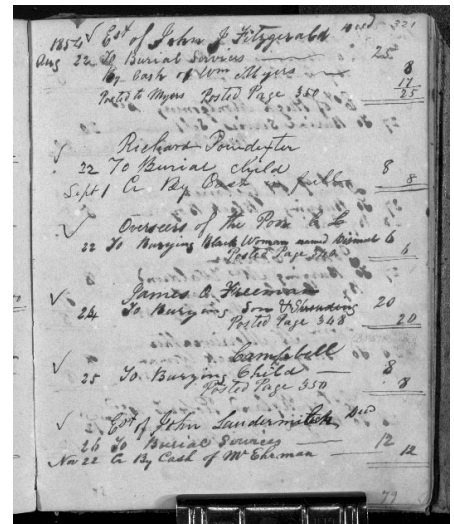 321
1854 ✓ Est of John J. Fitzgerald Decd
Aug 22 To Burial Services 25
By Cash of Wm Myers 8
Posted to Myers Posted Page 350 17
25
✓ Richard Poindexter
22 To Burial child 8
Sept 1 Cr By Cash in full 8
✓ Overseers of the Poor
22 To Burying Black Woman named 6
Posted Page 6
✓ James Freeman
24 To Burying Son & Shrouding 20
Posted Page 348 20
✓ Campbell
25 To Burying Child 8
Posted Page 350 8
✓ Est of John Laudermilch Decd
26 To Burial Services 12
Nov 22 Cr By Cash of Mr Ehrman 12
79